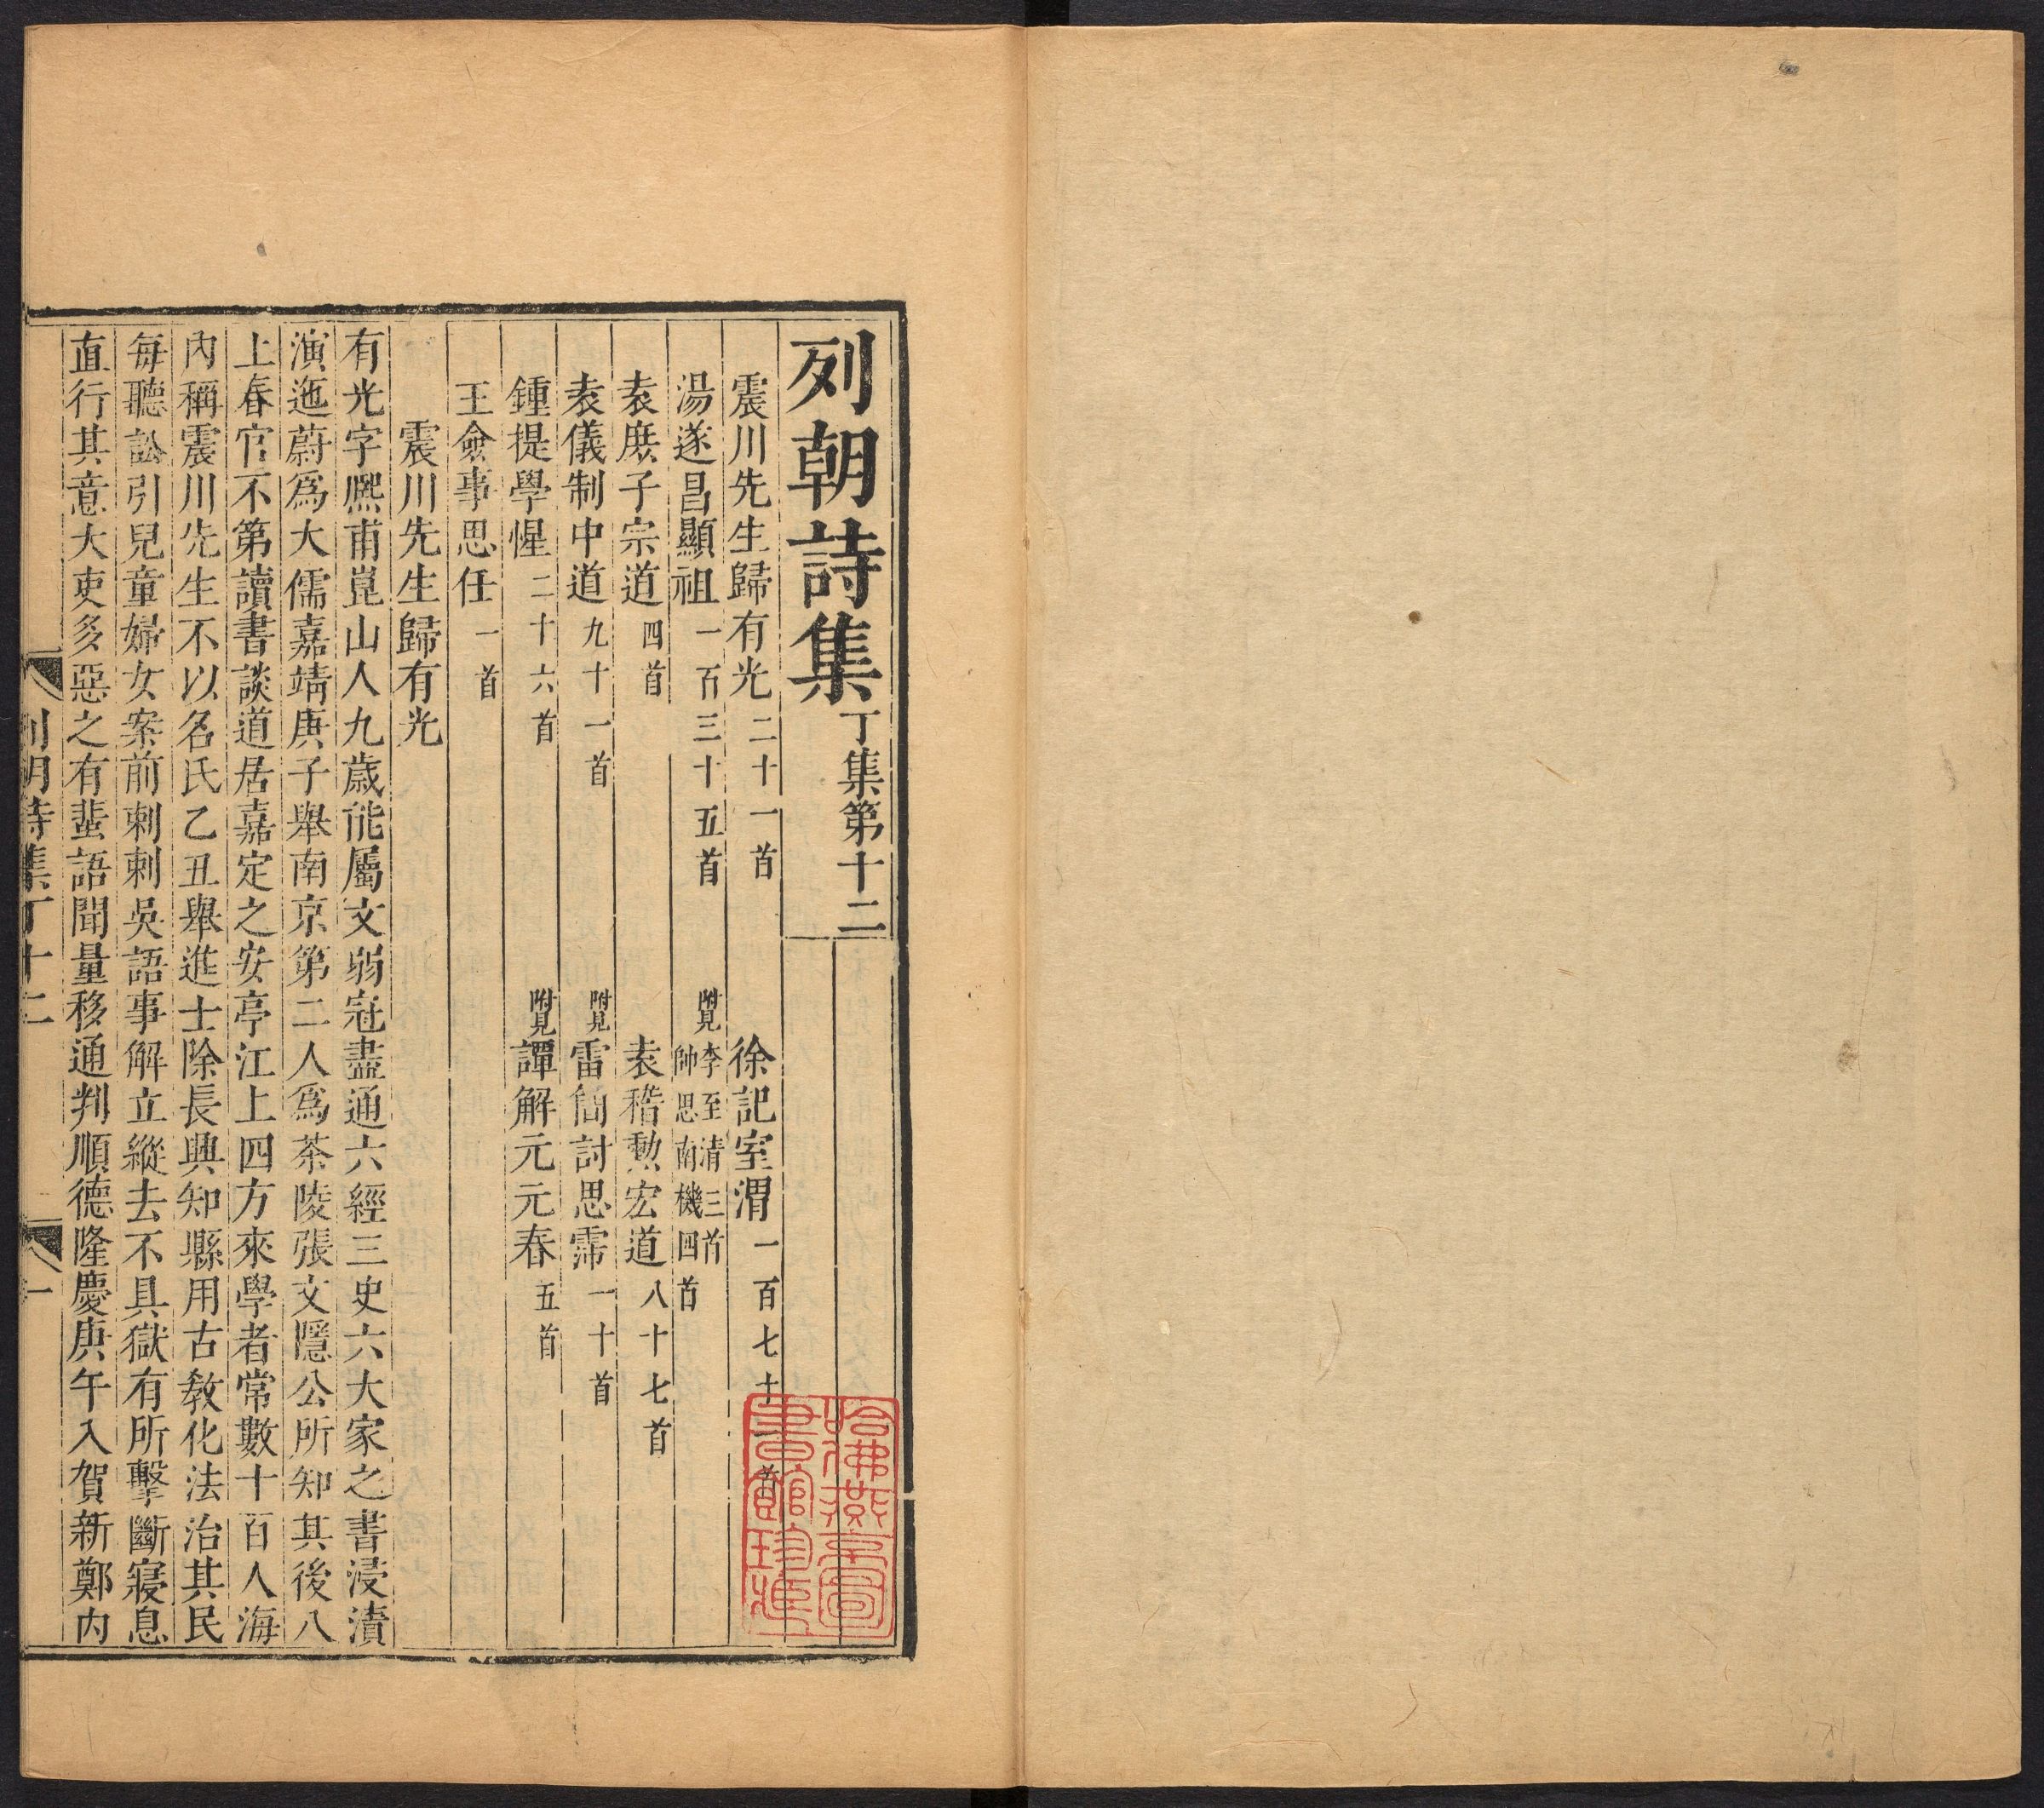 列朝詩集丁集第十二
震川先生歸有光二十一首 徐記室渭一百七十一首
湯遂昌顯祖一百三十五首 附見李至清三首帥思南機四首
袁庶子宗道四首 袁稽勲宏道八十七首
袁儀制中道九十一首 附見雷簡討思霈一十首
鍾提學惺二十六首 附見譚解元元春五首
王僉事思任一首
震川先生歸有光
有光字熈甫崑山人九歲能屬文弱冠盡通六經三史六大家之書浸漬
演迤蔚爲大儒嘉靖庚子舉南京第二人爲茶陵張文隱公所知其後八
上春官不第讀書談道居嘉定之安亭江上四方來學者常數十百人海
內稱震川先生不以名氏乙丑舉進士除長興知縣用古教化法治其民
每聽訟引兒童婦女案前刺刺吳語事解立縱去不具獄有所擊斷寢息
直行其意大吏多惡之有蜚語聞量移通判順德隆慶庚午入賀新鄭內
列朝詩集丁十二 一
哈佛燕京圖書館珍藏